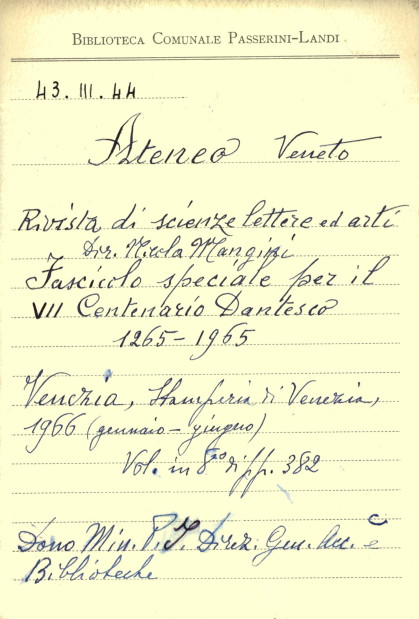 BIBLIOTECA COMUNALE PASSERINI-LANDI
43. III. 44
Ateneo Veneto
Rivista di scienze lettere ed arti
Dir. Nicola Mangini
Fascicolo speciale per il
VII Centenario Dantesco
1265-1965
Venezia, Stamperia di Venezia,
1966 (gennaio - giugno)
Vol. in 8º di pp. 382
Dono Min. P. I. Direz. Gen. Acc. e
Biblioteche